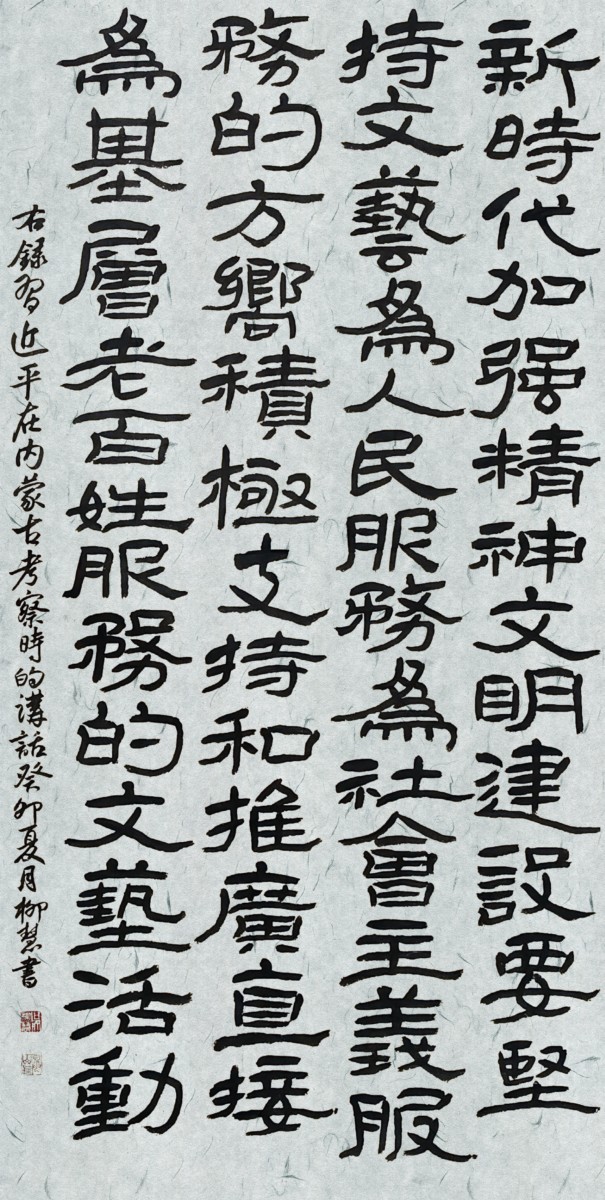 新時代加强精神文明建設要堅
持文藝為人民服務為社會主義服
務的方嚮積極支持和推廣直接
為基層老百姓服務的文藝活動
右録習近平在内蒙古考察時的講話癸卯夏月柳慧書